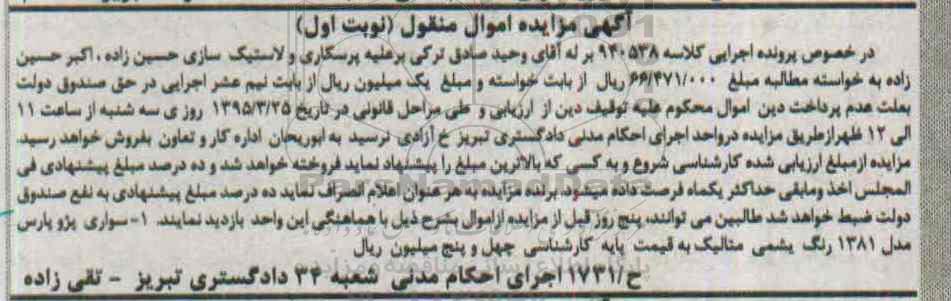 آگهی مزایده اموال منقول (نوبت اول)
در خصوص پرونده اجرایی کلاسه ۹۴۰۵۳۸ بر له آقای وحید صادق ترکی برعلیه پرسکاری و لاستیک سازی حسین زاده ، اکبر حسین
زاده به خواسته مطالبه مبلغ ۶۶/۴۷۱/۰۰۰ ریال از بابت خواسته و مبلغ یک میلیون ریال از بابت نیم عشر اجرایی در حق صندوق دولت
بعلت عدم پرداخت دین اموال محکوم علیه توقیف دین از ارزیابی و طی مراحل قانونی در تاریخ ۱۳۹۵/۳/۲۵ روز ی سه شنبه از ساعت ۱۱
الی ۱۲ ظهرازطریق مزایده درواحد اجرای احکام مدنی دادگستری تبریز خ آزادی نرسید به ابوریحان اداره کار و تعاون بفروش خواهد رسید.
مزایده ازمبلغ ارزیابی شده کارشناسی شروع و به کسی که بالاترین مبلغ را پیشنهاد نماید فروخته خواهد شد و ده درصد مبلغ پیشنهادی فی
المجلس اخذ ومابقی حداکثر یکماه فرصت داده میشود. برنده مزایده به هر عنوان اعلام انصراف نماید ده درصد مبلغ پیشنهادی به نفع صندوق
دولت ضبط خواهد شد طالبین می توانند، پنج روز قبل از مزایده ازاموال بشرح ذیل با هماهنگی این واحد بازدید نمایند. ۱- سواری پژو پارس
مدل ۱۳۸۱ رنگ یشمی متالیک به قیمت پایه کارشناسی چهل و پنج میلیون ریال
ح/۱۷۳۱ اجرای احکام مدنی شعبه ۳۴ دادگستری تبریز - تقی زاده